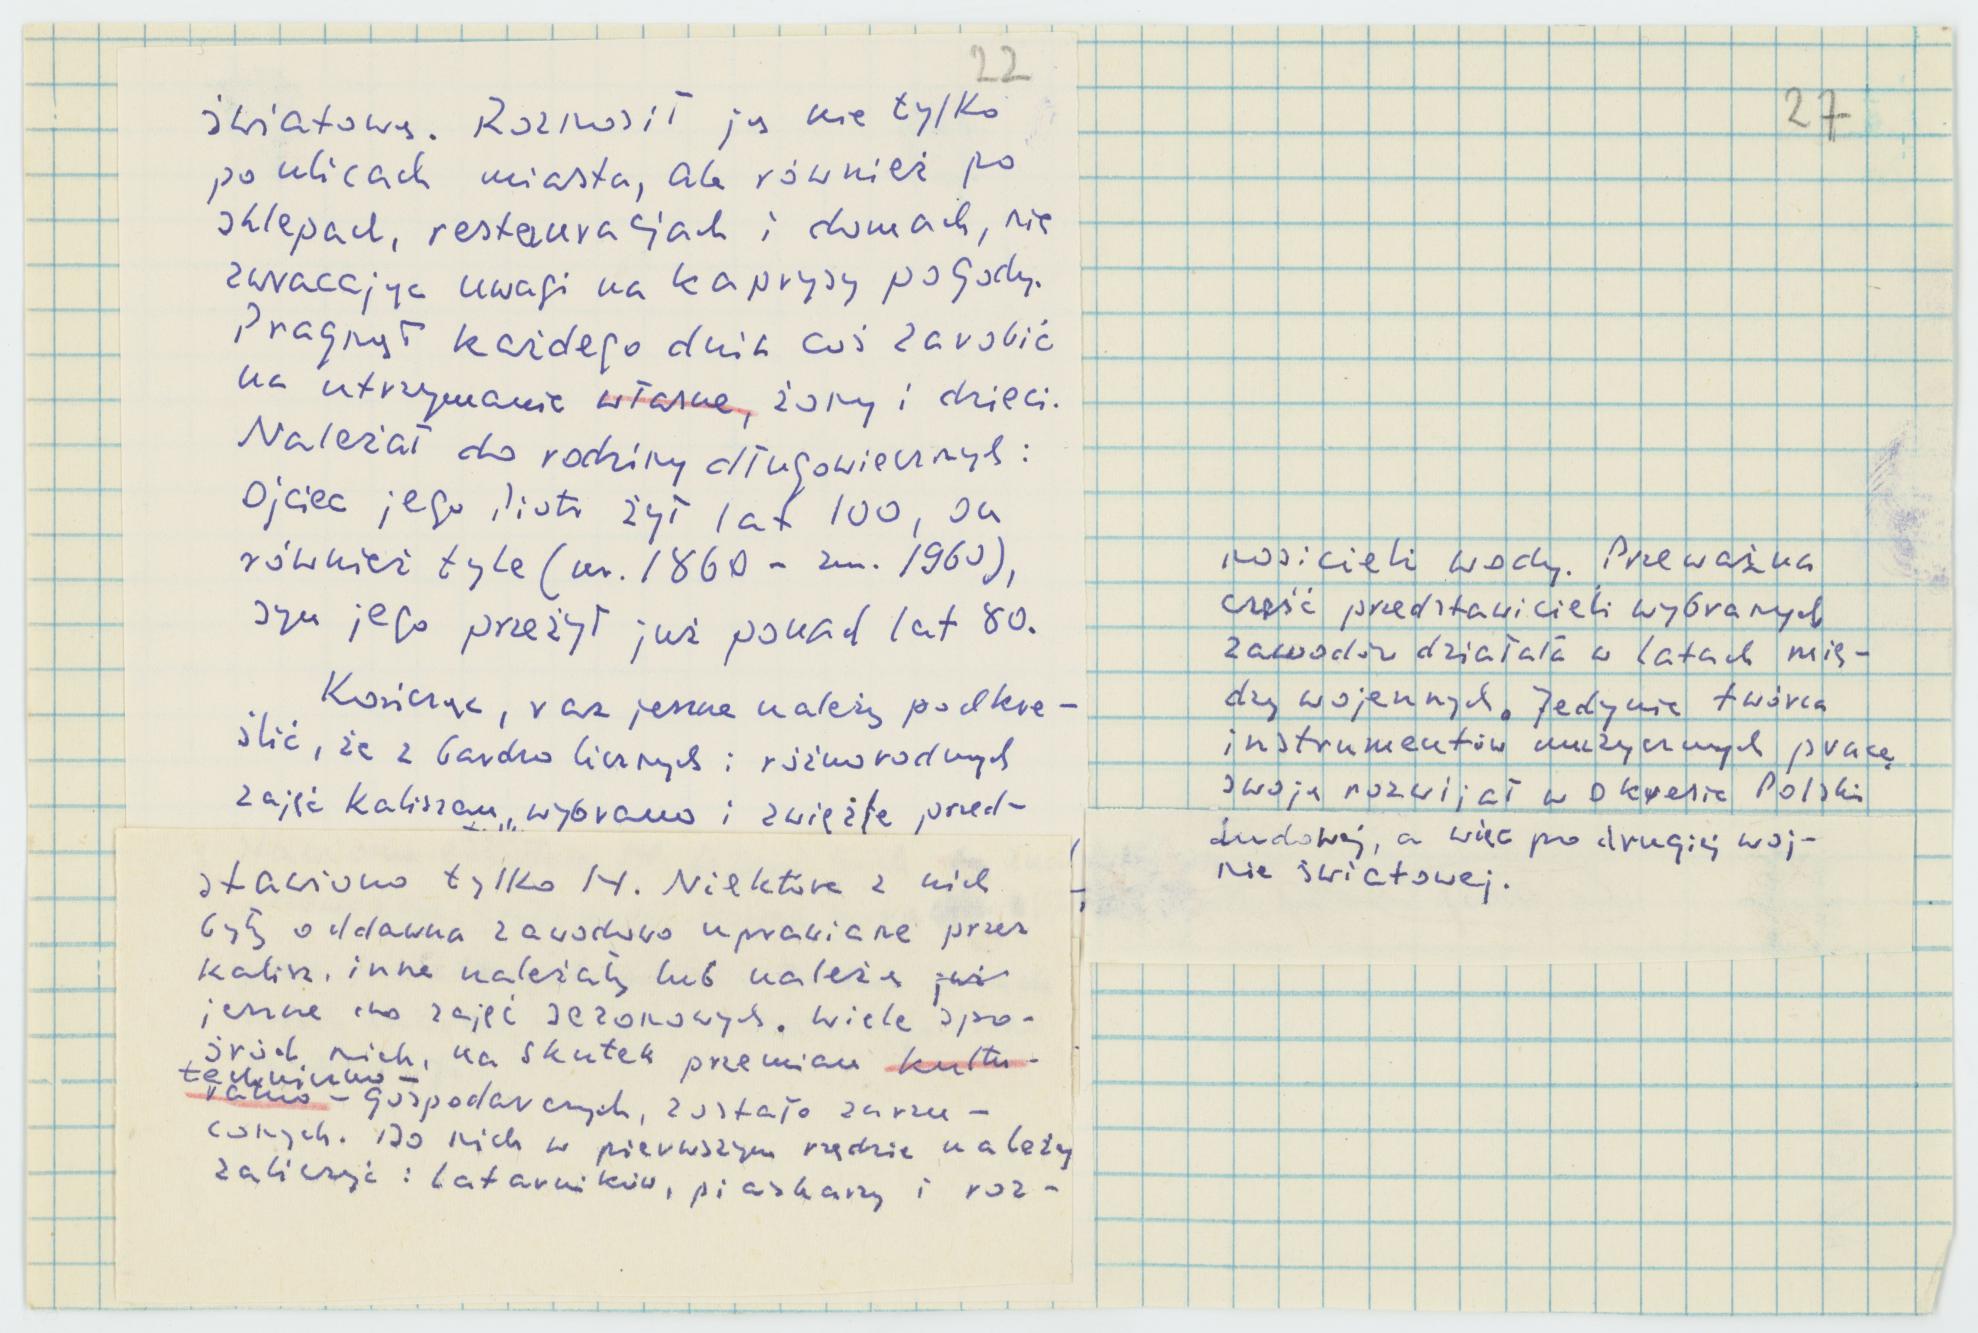 22
światową. Roznosił ją nie tylko
po ulicach miasta, ale również po
sklepach, restauracjach i domach, nie
zwracając uwagi na kaprysy pogody.
Pragnął każdego dnia coś zarobić
na utrzymanie własne, żony i dzieci.
Należał do rodziny długowiecznych:
Ojciec jego Piotr żył lat 100, on
również tyle (ur. 1860 - zm. 1960),
syn jego przeżył już ponad lat 80.
Kończąc, raz jeszcze należy podkre-
ślić, że z bardzo licznych i różnorodnych
zajęć Kaliszan wybrano i zwięźle przed-
stawiono tylko 14. Niektóre z nich
były oddawna zawodowo uprawiane przez
kalisz. inne należały lub należą już
jeszcze do zajęć sezonowych. Wiele spo-
śród nich, na skutek przemian kultu-
techniczno-
ralno - gospodarczych, zostało zarzu-
conych. Do nich w pierwszym rzędzie należy
zaliczyć: latarników, piaskarzy i roz-
27
nosicieli wody. Przeważna
część przedstawicieli wybranych
zawodów działała w latach mię-
dzywojennych. Jedynie twórca
instrumentów muzycznych pracę
swoją rozwijał w okresie Polski
Ludowej, a więc po drugiej woj-
nie światowej.